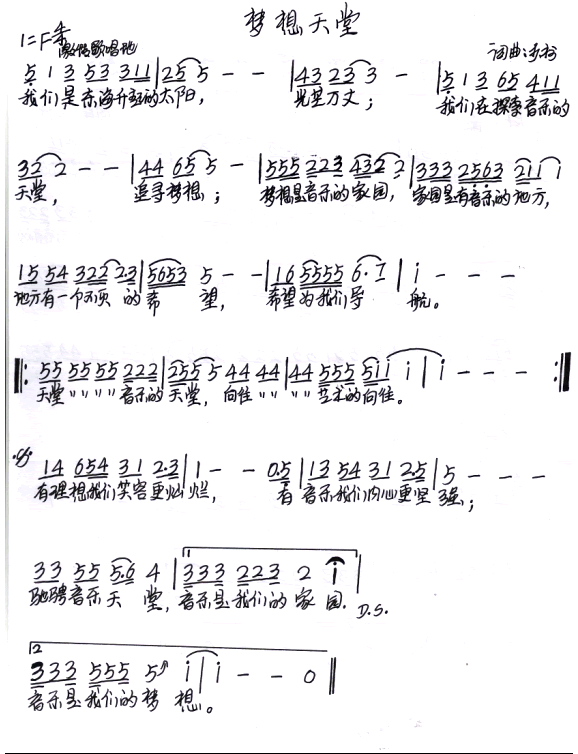 梦想天堂
1=F 4/4
激情歌唱地
词曲:
5 1 3 53 311 | 25 5 - - | 43 23 3 - | 5 1 3 65 411
我们是东海升起的太阳, 光芒万丈; 我们在探索音乐的
32 2 - - | 44 65 5 - | 555 223 432 2 | 333 2563 211 i
天堂, 追寻梦想; 梦想是音乐的家园, 家园是有音乐的地方,
15 54 322 23 | 5653 5 - - | 16 5555 6· 7 | i - - -
地方有一个不灭 的希 望, 希望为我们导 航。
‖: 55 55 55 222 | 255 5 44 44 | 44 555 5ii i | i - - - :‖
天堂 " " " " 音乐的 天堂, 向往 " " " " 艺术的向往。
14 654 31 2·3 | 1 - - 0·5 | 13 54 31 2·5 | 5 - - -
有理想我们笑容更灿 烂, 有 音乐我们内心更坚 强;
33 55 5·6 4 | 333 223 2 i |
驰骋音乐天 堂, 音乐是我们的 家 园. D.S.
2
333 555 5 i | i - - 0 ‖
音乐是我们的梦 想。